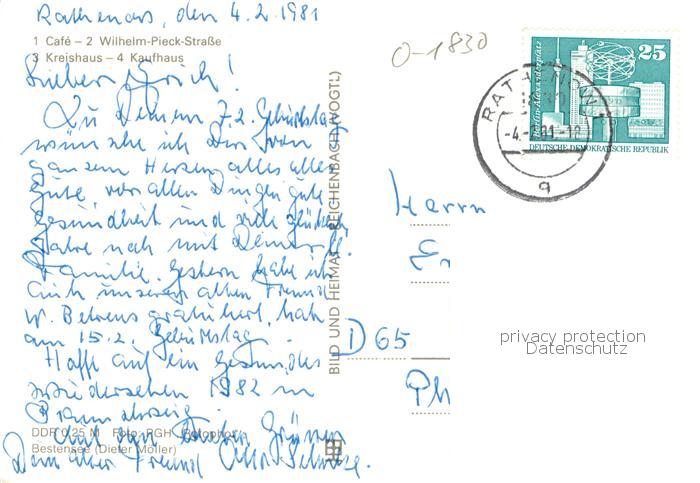 Rathenow, den 4.2.1981
1 Café – 2 Wilhelm-Pieck-Straße
3 Kreishaus – 4 Kaufhaus
Lieber Erich!
Zu Deinem 72. Geburtstag
wünsche ich Dir von
ganzem Herzen alles alles
Gute, vor allen Dingen gute
Gesundheit und viele glückliche
Jahre noch mit Deiner
Familie. Gestern habe ich
auch unserem alten Freund
W. Behrens gratuliert, hat
am 15.2. Geburtstag.
Hoffe auf ein gesundes
Wiedersehen 1982 in
Braunschweig.
DDR 0,25 M Foto: PGH „Rotophot“
Bestensee (Dieter Möller)
Dein alter Freund Otto
BILD UND HEIMAT REICHENBACH (VOGTL)
0-1830
25
Berlin-Alexanderplatz
DEUTSCHE DEMOKRATISCHE REPUBLIK
RATHENOW 1
1830
-4.-2.81-18
a
Herrn
D 65
Ph
privacy protection
Datenschutz